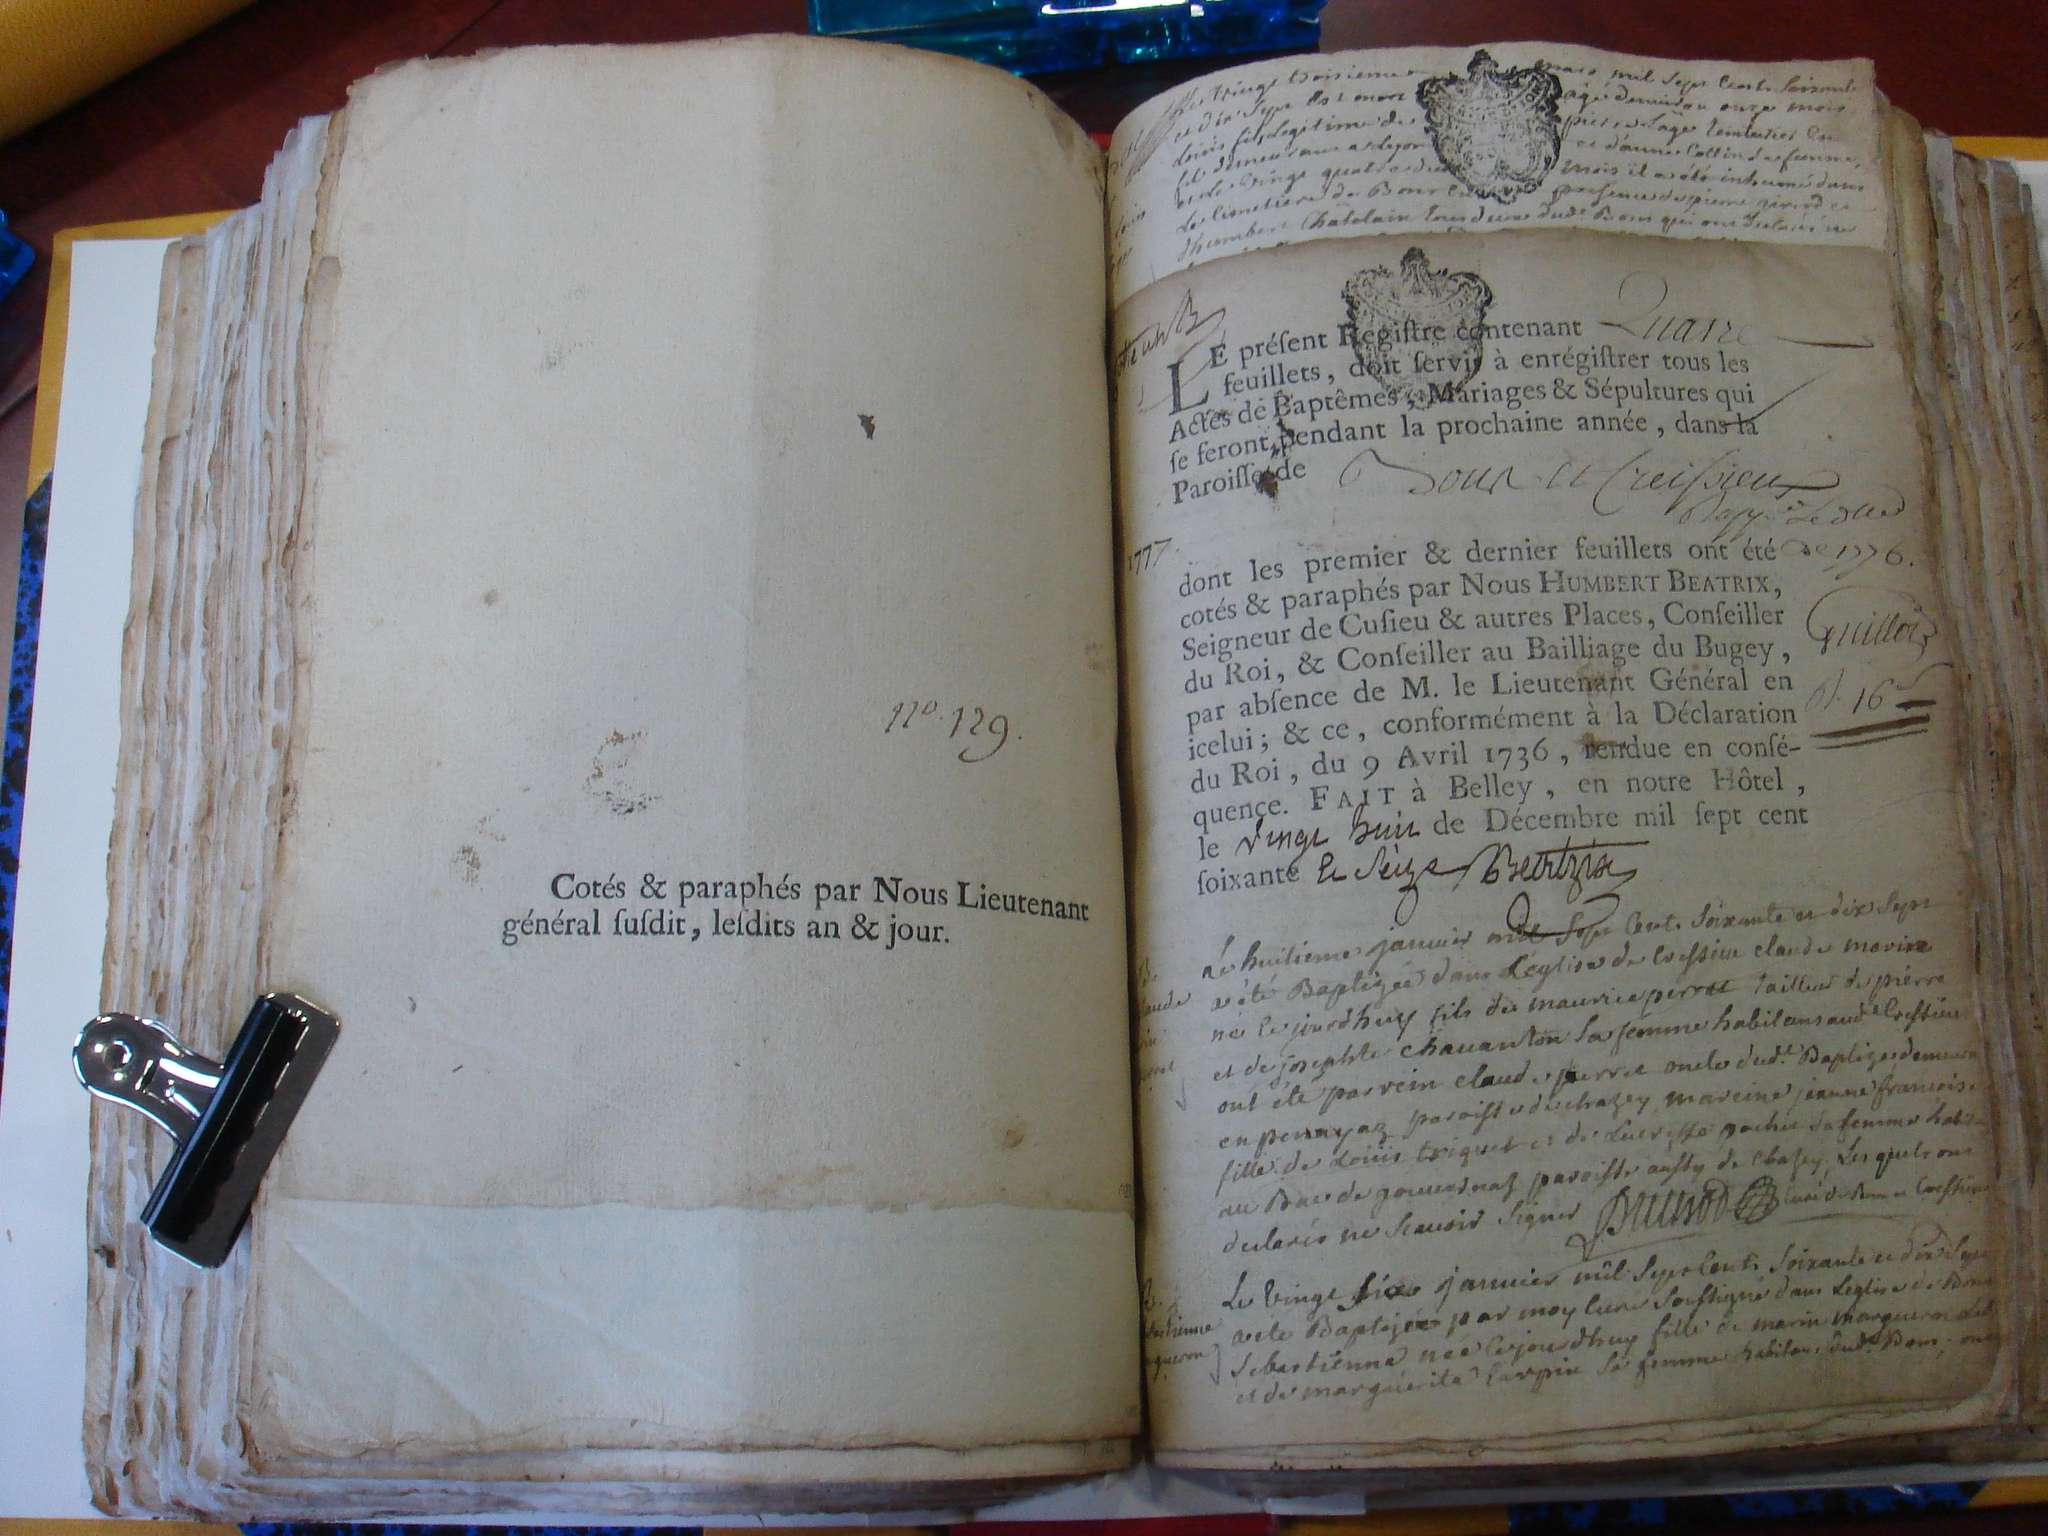 n.o 129.
Cotés & paraphés par Nous Lieutenant
général ſuſdit, leſdits an & jour.
Le vingt troisieme mars mil sept cents soixante
et dix sept est mort agé d'environ onze mois
Louis fils Legitime de pierre
fel demeurant a Lyon et d'anne Collin sa femme,
et le vingt quatre du mois il a été inhumé dans
Le Cimetiere de Bons en presence de pierre
d'humbert Châtelain tous deux dud.t Bons qui ont declaré ne
LE préſent Regiſtre contenant Quatre
feuillets, doit ſervir à enrégiſtrer tous les
Actes de Baptêmes, Mariages & Sépultures qui
ſe feront pendant la prochaine année, dans la
Paroiſſe de Bons et Creissieu
1777
dont les premier & dernier feuillets ont été
de 1776.
cotés & paraphés par Nous HUMBERT BEATRIX,
Seigneur de Cuſieu & autres Places, Conſeiller
Guillot
du Roi, & Conſeiller au Bailliage du Bugey,
par abſence de M. le Lieutenant Général en
16
icelui; & ce, conformément à la Déclaration
du Roi, du 9 Avril 1736, rendue en conſé-
quence. FAIT à Belley, en notre Hôtel,
le vingt huit de Décembre mil ſept cent
ſoixante et seize Beatrix
Le huitieme janvier mil sept cents soixante et dix sept
a été Baptizé dans L'eglise de Cressieu claude marin
né ce jourdhuy fils de maurice perret tailleur de pierre
et de josephte chavanton sa femme habitans aud.t Cressieu
ont été parrein claude perret oncle dud.t Baptizé demeurant
en paroisse de chazey, mareine jeanne françoise
fille de Louis triquet et de sa femme habit
au Bac de paroisse aussy de Chazey, Les quels ont
declarés ne scavoir signer Brunod Curé de Bons et Cressieu
B.
Sebastienne
Margueron
Le vingt six janvier mil sept cents soixante et dix sept
a été Baptizée par moy Curé soussigné dans L'eglise de Bons
Sebastienne née ce jourdhuy fille de marin margueron
et de marguerite Carpin sa femme habitans dud.t Bons, ont